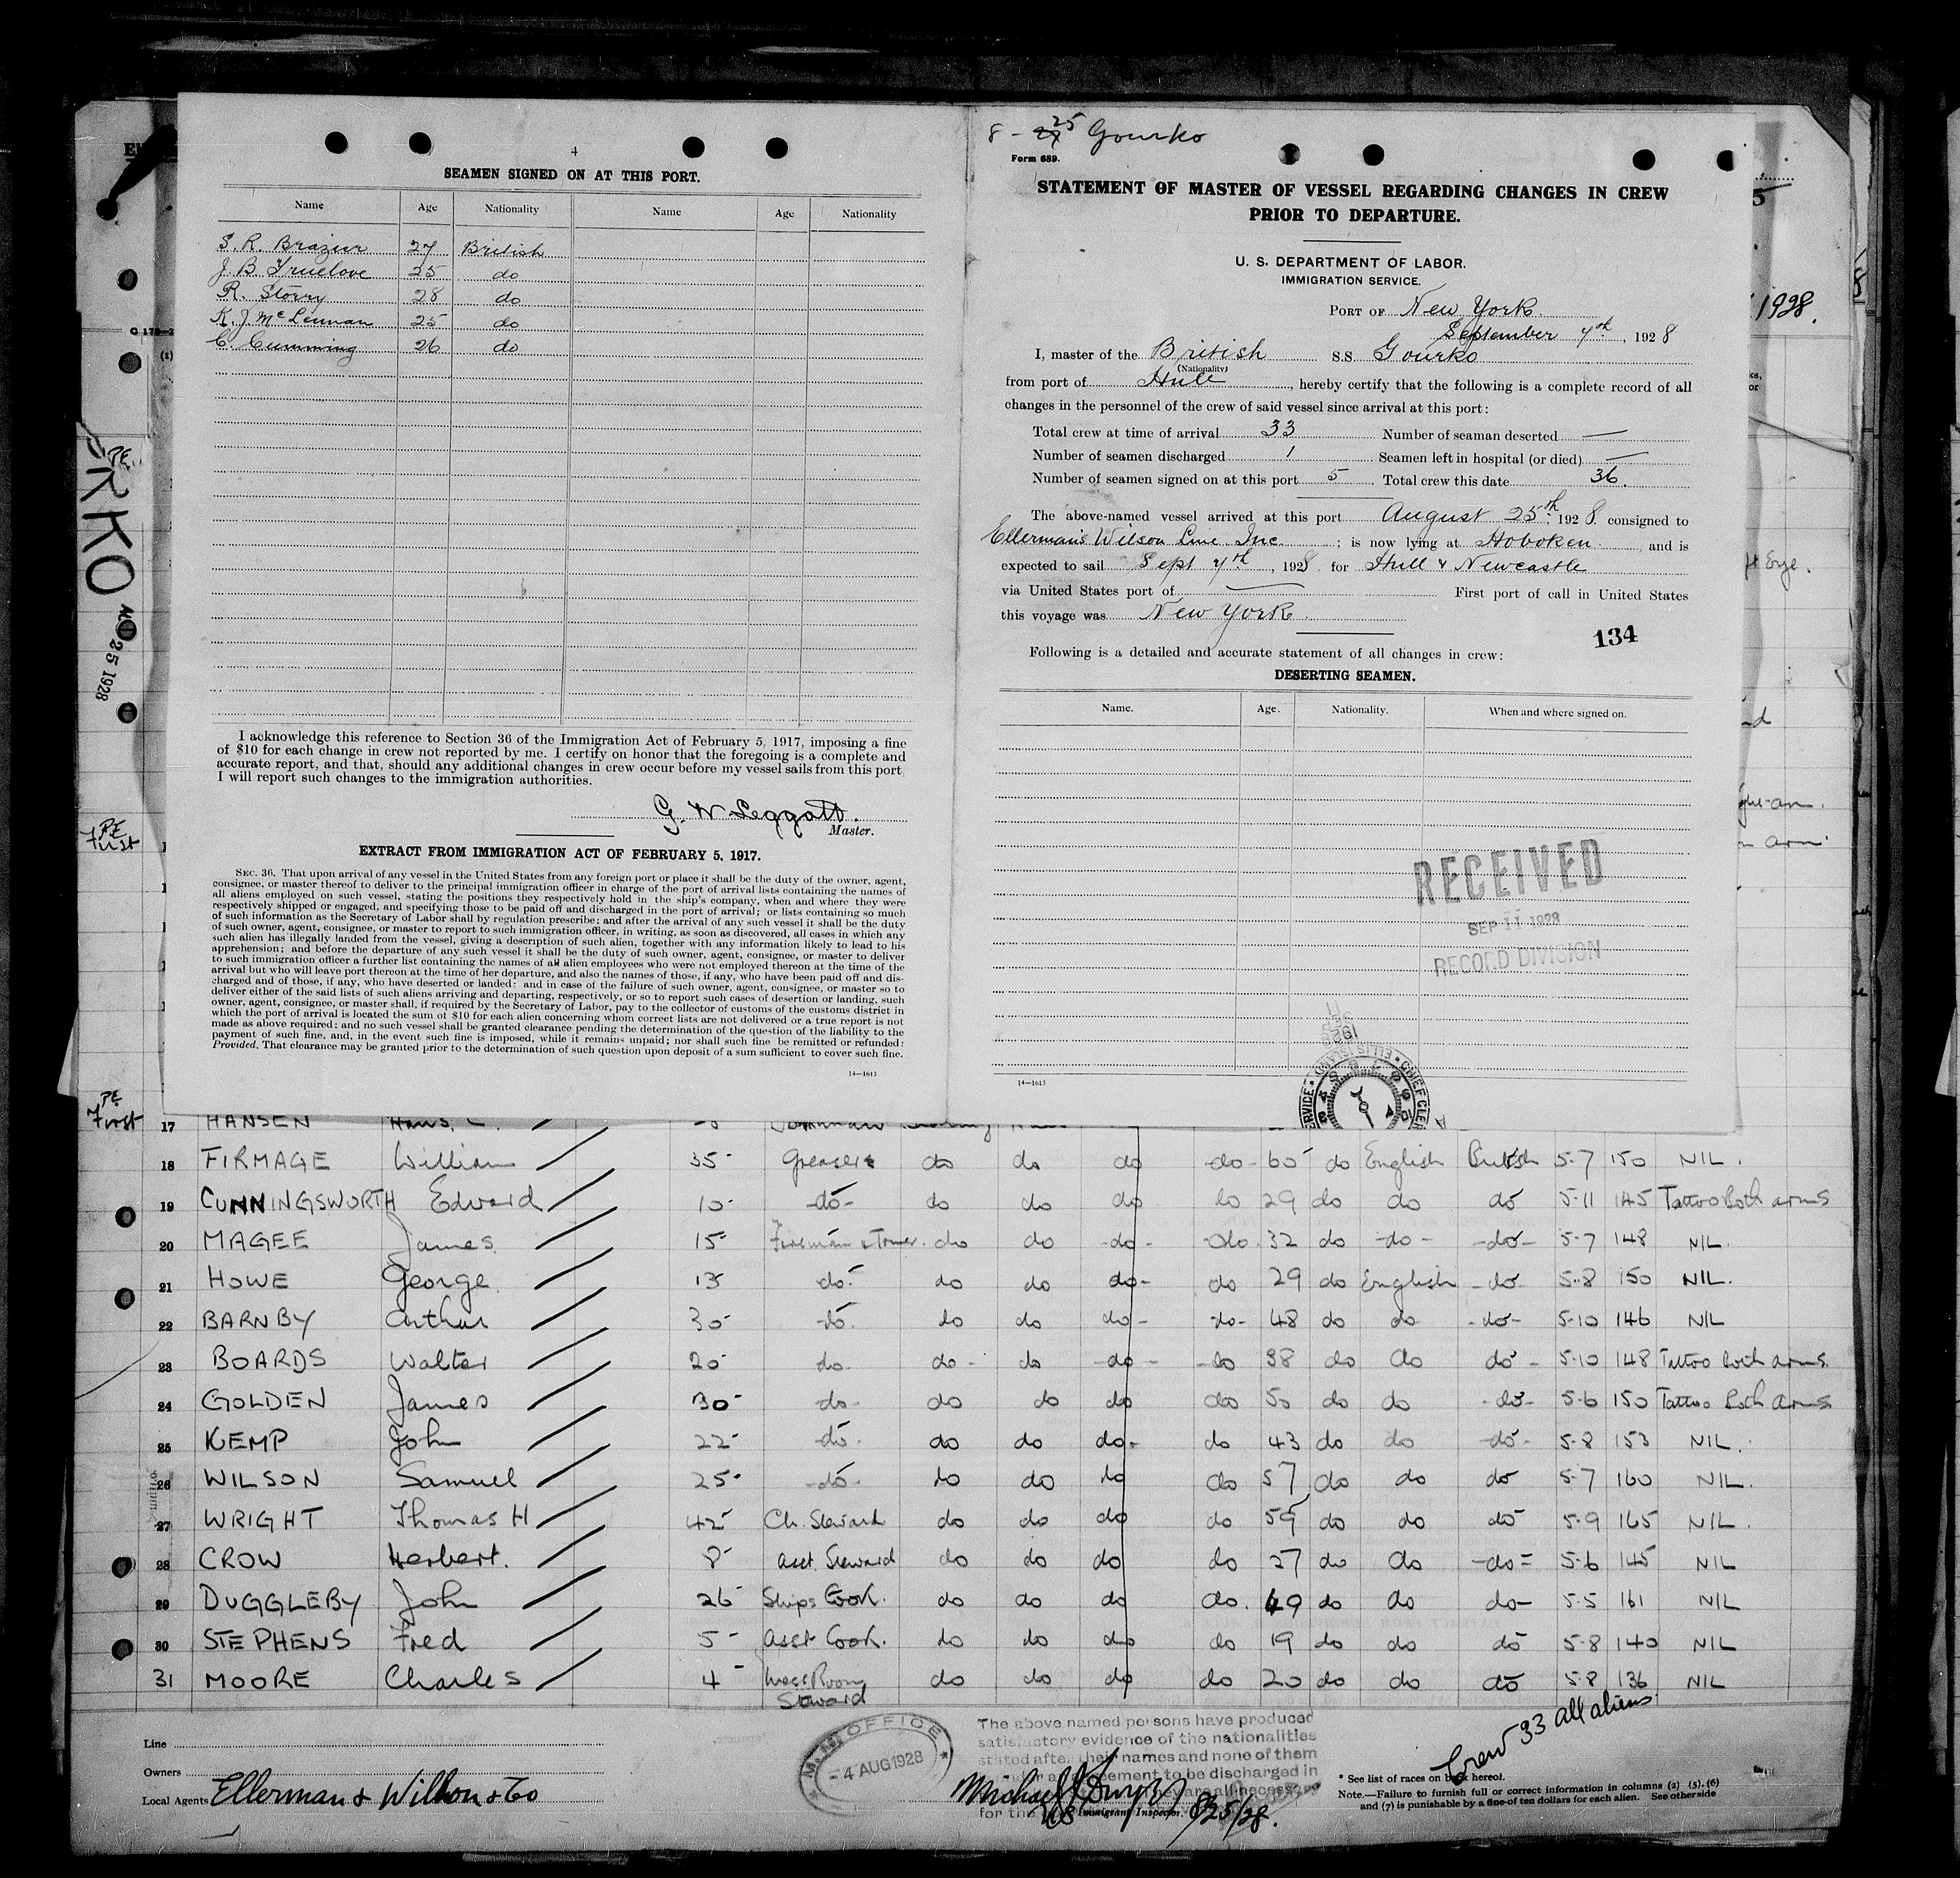 4
SEAMEN SIGNED ON AT THIS PORT.
Name Age Nationality Name Age Nationality
S. R. Brazier 27 British
J. B. Truelove 25 do
R. Storry 28 do
K. J. McLennan 25 do
C. Cumming 26 do
I acknowledge this reference to Section 36 of the Immigration Act of February 5, 1917, imposing a fine
of $10 for each change in crew not reported by me. I certify on honor that the foregoing is a complete and
accurate report, and that, should any additional changes in crew occur before my vessel sails from this port
I will report such changes to the immigration authorities.
G. W Leggott.
Master.
EXTRACT FROM IMMIGRATION ACT OF FEBRUARY 5, 1917.
SEC. 36. That upon arrival of any vessel in the United States from any foreign port or place it shall be the duty of the owner, agent,
consignee, or master thereof to deliver to the principal immigration officer in charge of the port of arrival lists containing the names of
all aliens employed on such vessel, stating the positions they respectively hold in the ship's company, when and where they were
respectively shipped or engaged, and specifying those to be paid off and discharged in the port of arrival; or lists containing so much
of such information as the Secretary of Labor shall by regulation prescribe; and after the arrival of any such vessel it shall be the duty
of such owner, agent, consignee, or master to report to such immigration officer, in writing, as soon as discovered, all cases in which any
such alien has illegally landed from the vessel, giving a description of such alien, together with any information likely to lead to his
apprehension; and before the departure of any such vessel it shall be the duty of such owner, agent, consignee, or master to deliver
to such immigration officer a further list containing the names of all alien employees who were not employed thereon at the time of the
arrival but who will leave port thereon at the time of her departure, and also the names of those, if any, who have been paid off and dis-
charged and of those, if any, who have deserted or landed; and in case of the failure of such owner, agent, consignee, or master so to
deliver either of the said lists of such aliens arriving and departing, respectively, or so to report such cases of desertion or landing, such
owner, agent, consignee, or master shall, if required by the Secretary of Labor, pay to the collector of customs of the customs district in
which the port of arrival is located the sum of $10 for each alien concerning whom correct lists are not delivered or a true report is not
made as above required; and no such vessel shall be granted clearance pending the determination of the question of the liability to the
payment of such fine, and, in the event such fine is imposed, while it remains unpaid; nor shall such fine be remitted or refunded:
Provided, That clearance may be granted prior to the determination of such question upon deposit of a sum sufficient to cover such fine.
14—1613
8 - 25 Gourko
Form 689.
STATEMENT OF MASTER OF VESSEL REGARDING CHANGES IN CREW
PRIOR TO DEPARTURE.
U. S. DEPARTMENT OF LABOR.
IMMIGRATION SERVICE.
PORT OF New York.
September 7th, 1928
I, master of the British SS. Gourko
(Nationality)
from port of Hull, hereby certify that the following is a complete record of all
changes in the personnel of the crew of said vessel since arrival at this port:
Total crew at time of arrival 33 Number of seaman deserted —
Number of seamen discharged 1 Seamen left in hospital (or died) —
Number of seamen signed on at this port 5. Total crew this date 36.
The above-named vessel arrived at this port August 25th, 1928. consigned to
Ellerman's Wilson Line Inc.; is now lying at Hoboken and is
expected to sail Sept 7th, 1928 for Hull & Newcastle
via United States port of — First port of call in United States
this voyage was New York.
134
Following is a detailed and accurate statement of all changes in crew:
DESERTING SEAMEN.
Name. Age. Nationality. When and where signed on.
RECEIVED
SEP 11 1928
RECORD DIVISION
14—1613
1928.
RKO
25 1928
PE
First
PE
First
17 HANSEN Hans.
18 FIRMAGE William 35 Greaser do do do do 60 do English British 5-7 150 NIL.
19 CUNNINGSWORTH Edward 10 do do do do do 29 do do do 5-11 145 Tattoo Both arms
20 MAGEE James 15 Fireman & Trimmer do do do do 32 do do do 5-7 148 NIL.
21 HOWE George 13 do do do do do 29 do English do 5-8 150 NIL.
22 BARNBY Arthur 30 do do do do do 48 do do do 5-10 146 NIL
23 BOARDS Walter 20 do do do do do 38 do do do 5-10 148 Tattoo both arms.
24 GOLDEN James 30 do do do do do 50 do do do 5-6 150 Tattoo Both arms
25 KEMP John 22 do do do do do 43 do do do 5-8 153 NIL.
26 WILSON Samuel 25 do do do do do 57 do do do 5-7 160 NIL.
27 WRIGHT Thomas H 42 Ch. Steward do do do do 59 do do do 5-9 165 NIL.
28 CROW Herbert. 8 asst. Steward do do do do 27 do do do 5-6 145 NIL
29 DUGGLEBY John 26 Ships Cook. do do do do. 49 do do do 5-5 161 NIL
30 STEPHENS Fred 5 asst Cook. do do do do 19 do do do 5-8 140 NIL
31 MOORE Charles 4 Mess Room do do do do 20 do do do 5-8 136 NIL
Steward
Crew 33 all aliens
Line
Owners
Local Agents Ellerman & Wilson & Co
M.M. OFFICE
- 4 AUG 1928
The above named persons have produced
satisfactory evidence of the nationalities
stated after their names and none of them
Immigrant Inspector. 8/25/28.
* See list of races on back hereof.
Note.—Failure to furnish full or correct information in columns (2) (5), (6)
and (7) is punishable by a fine of ten dollars for each alien. See otherside